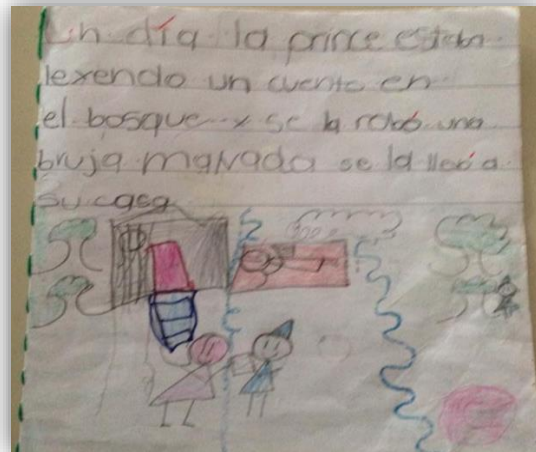 Un día la prince estaba
lexendo un cuento en
el bosque x se la robó una
bruja malvada se la llebó a
su casa